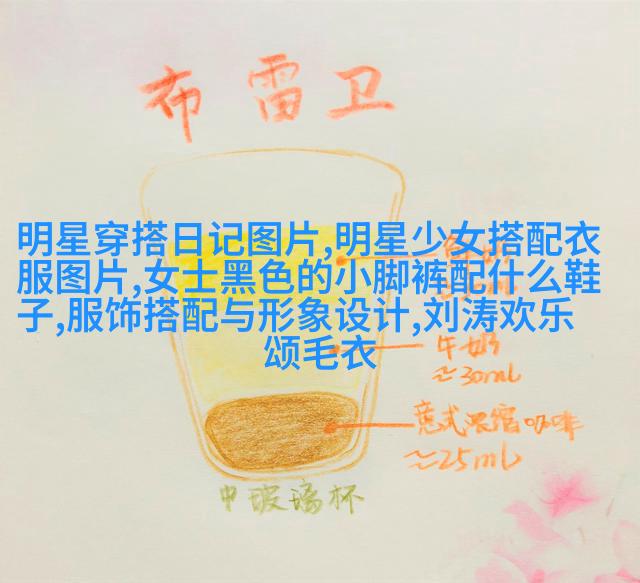 布雷卫
明星穿搭日记图片,明星少女搭配衣
服图片,女士黑色的小脚裤配什么鞋
子,服饰搭配与形象设计,刘涛欢乐
颂毛衣
牛奶
≈30ml
意式浓缩咖啡
≈25ml
中玻璃杯